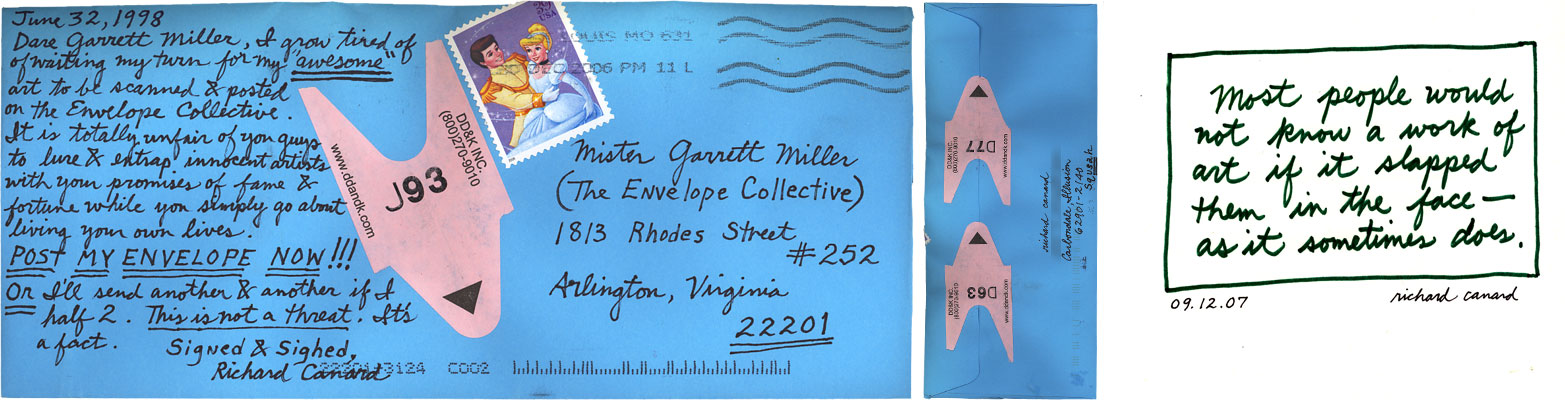 June 32, 1998
Dare Garrett Miller, I grow tired of
of waiting my turn for my "awesome"
art to be scanned & posted
on the Envelope Collective.
It is totally unfair of you guys
to lure & entrap innocent artists
with your promises of fame &
fortune while you simply go about
living your own lives.
POST MY ENVELOPE NOW!!!
Or I'll send another & another if I
half 2. This is not a threat. It's
a fact.
Signed & Sighed,
Richard Canard
www.ddandk.com
J93
DD&K INC.
(800)270-9010
USA
LOUIS MO 631
DEC 2006 PM 11 L
Mister Garrett Miller
(The Envelope Collective)
1813 Rhodes Street
#252
Arlington, Virginia
22201
3124 C002
DD&K INC.
(800)270-9010
D77
www.ddandk.com
richard canard
Carbondale, Illusion
62901-2140
DD&K INC.
(800)270-9010
D63
www.ddandk.com
Most people would
not know a work of
art if it slapped
them in the face—
as it sometimes does.
09.12.07 richard canard